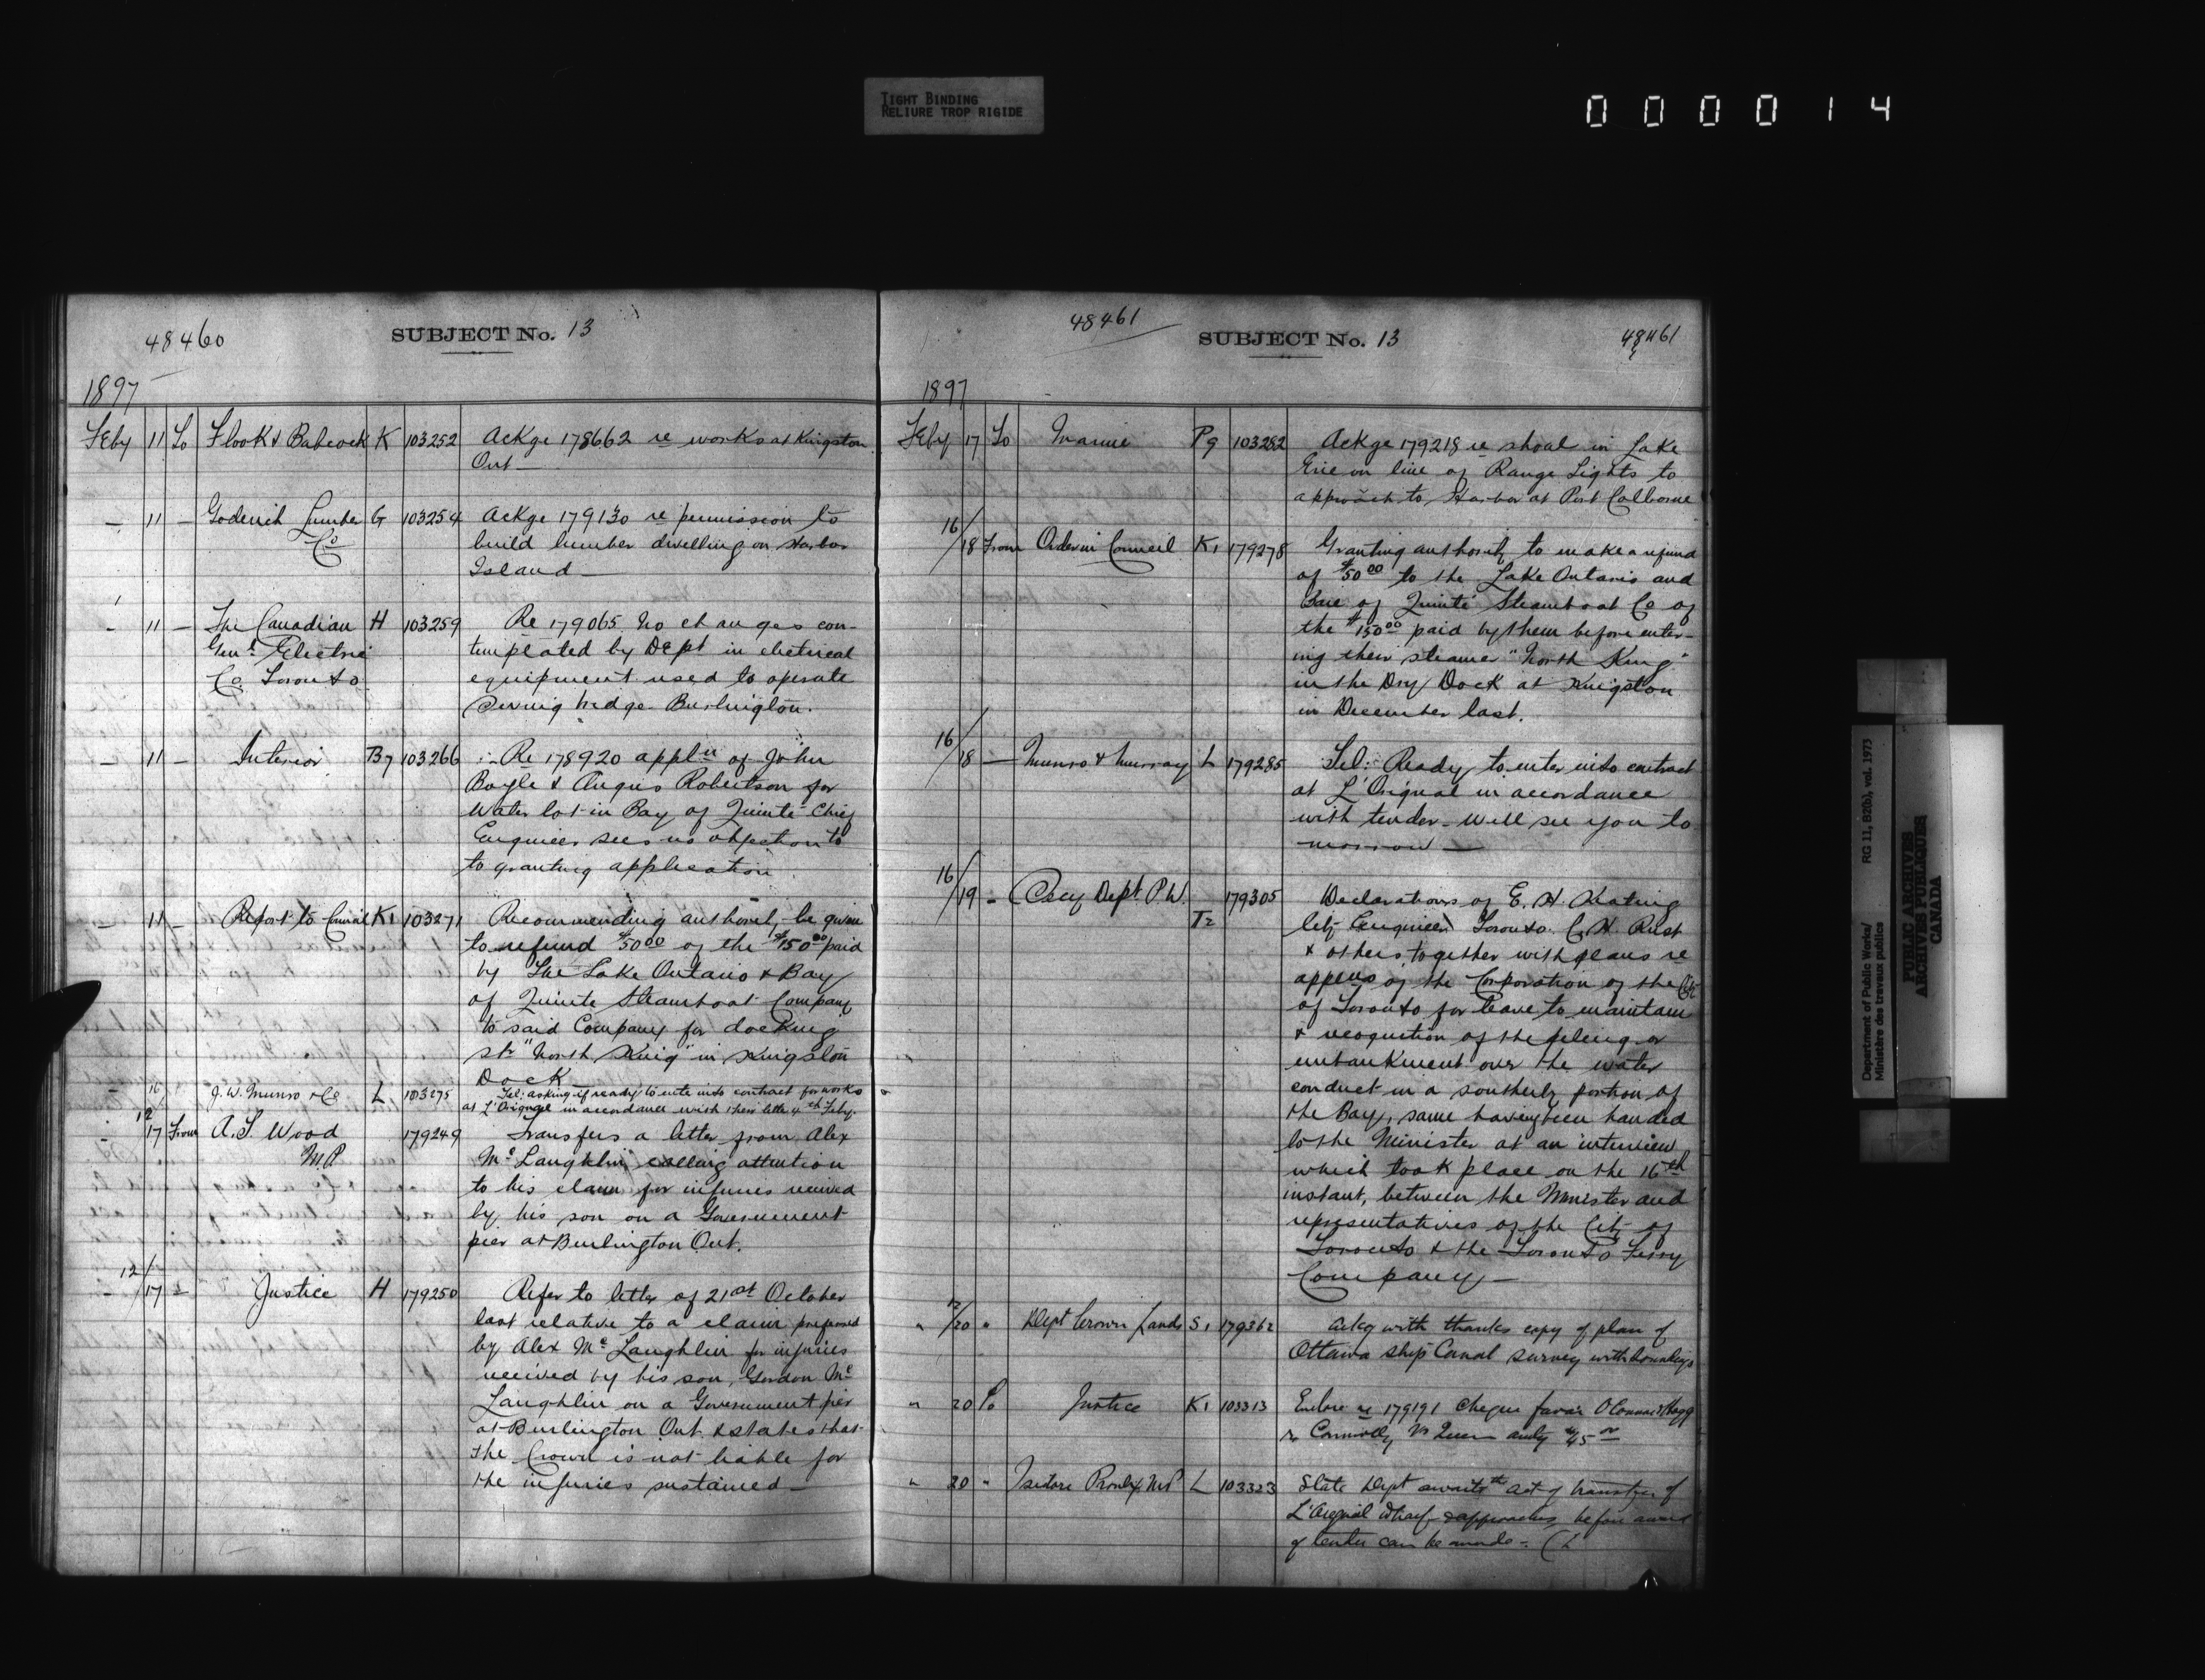 TIGHT BINDING
RELIURE TROP RIGIDE
000014
48460
SUBJECT No. 13
1897
Feby 11 To Flook & Babcock K 103252 Ackge 178662 re works at Kingston
Ont —
— 11 — Goderich Lumber G 103254 Ackge 179130 re permission to
Co build lumber dwelling on Harbor
Island —
- 11 — The Canadian H 103259 Re 179065 No changes con-
Genl Electric templated by Dept in electrical
Co Toronto equipment used to operate
Swing bridge Burlington.
— 11 — Interior B7 103266 :- Re 178920 appln of John
Boyle & Angus Robertson for
Water lot in Bay of Quinte Chief
Engineer sees no objection to
to granting application
— 11 — Report to Council K1 103271 Recommending authority be given
to refund $50 00 of the $150 00 paid
by The Lake Ontario & Bay
of Quinte Steamboat Company
to said Company for docking
str "North King" in Kingston
Dock
- 16 J. W. Munro & Co L 103275 Tel: asking if ready to enter into contract for works
at L'Orignal in accordance with their letter 4th Feby.
12/17 From A. T. Wood 179249 Transfers a letter from Alex
M.P McLaughlin calling attention
to his claim for injuries received
by his son on a Government
pier at Burlington Ont.
12/17 - Justice H 179250 Refer to letter of 21st October
last relative to a claim preferred
by Alex McLaughlin for injuries
received by his son, Gordon Mc
Laughlin on a Government pier
at Burlington Ont & states that
the Crown is not liable for
the injuries sustained —
48461
SUBJECT No. 13
48461
1897
Feby 17 To Marine P9 103282 Ackge 179218 re shoal in Lake
Erie on line of Range Lights to
approach to Harbor at Port Colborne
16/18 From Order in Council K1 179278 Granting authority to make a refund
of $50 00 to the Lake Ontario and
Baie of Quinte Steamboat Co of
the $150 00 paid by them before enter-
ing their steamer "North King"
in the Dry Dock at Kingston
in December last.
16/18 — Munro & Murray L 179285 Tel:- Ready to enter into contract
at L'Orignal in accordance
with tender - will see you to
morrow —
16/19 - Secy Dept P.W. T2 179305 Declarations of E. H. Keating
City Engineer Toronto C. H. Rust
& others, together with plans re
appln of the Corporation of the City
of Toronto for leave to maintain
& recognition of the piling or
embankment over the water
conduit in a southerly portion of
the Bay, same having been handed
to the Minister at an interview
which took place on the 16th
instant, between the Minister and
representatives of the City of
Toronto & the Toronto Ferry
Company —
" 12/20 " Dept Crown Lands S1 179362 Ackg with thanks copy of plan of
Ottawa Ship Canal survey with
" 20 To Justice K1 103313 Enclose re 179191 cheque favor O'Connor & Hogg
Connolly vs Queen $45 00
" 20 " Isidore Proulx M.P L 103323 State Dept awaits the act of transfer of
L'Orignal Wharf & approaches before award
of tender can be made -
Department of Public Works/ RG 11, B2(b), vol. 1973
Ministère des travaux publics
PUBLIC ARCHIVES
ARCHIVES PUBLIQUES
CANADA